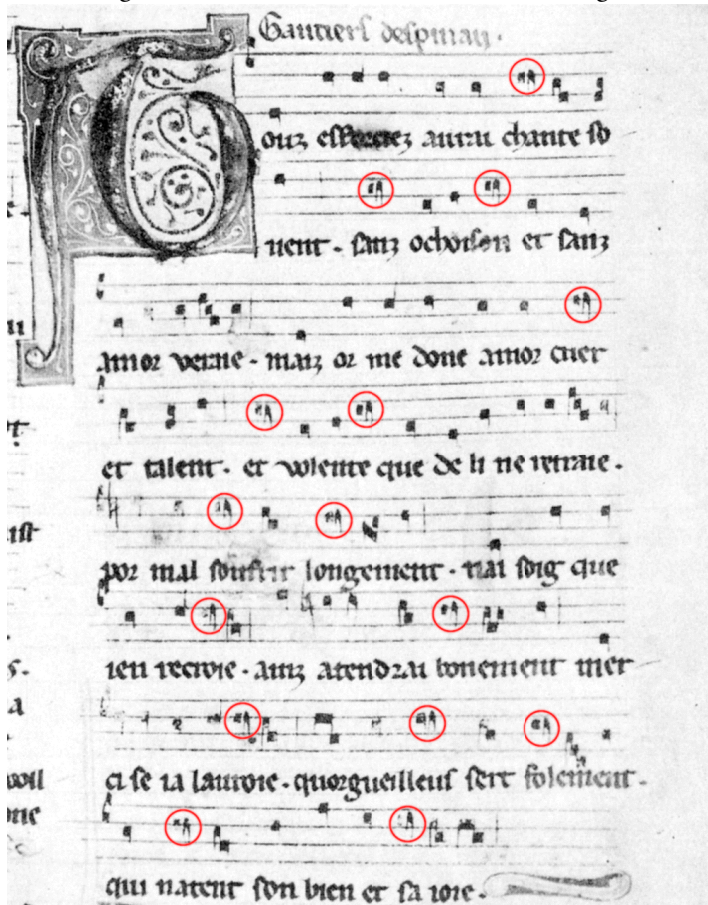 Gautiers despinau.
ouz esforciez aurai chante so
uent. sanz ochoison et sanz
amor veraie. maiz or me done amor cuer
et talent. et volente que de li ne retraie.
por mal soufrir longement. nai soig que
ien recroie. ainz atendrai bonement mer
ci se ia lauroie. quorgueilleus sert folement.
qui natent son bien et sa ioie.